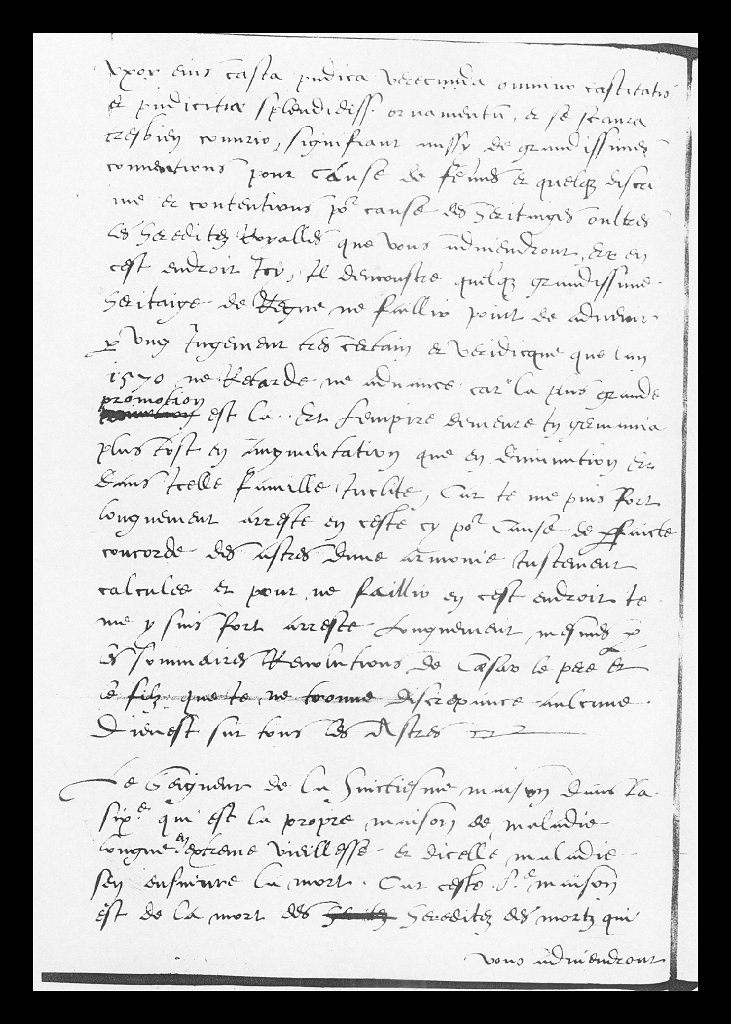 uxor eius casta pudica verecunda omnino castitatis
et pudicitiæ splendidiss. ornamentū, et se scaura
tresbien connrio, signifiant aussy de grandissimes
contentions pour cause de fēmes et quelqz disca
me et contentions pr cause des heritaiges oultres
les hereditez Royalles que vous adviendront, Et en
cest endroit Icy, Il demonstre quelqz grandissime
heritaige de Regne ne faillir point de advenir
p ung Iugement tres certain et veridicque que lan
1570 ne Retarde ne advance car la plus grande
promotion est la. Et lempire demeure en germania
plus tost en augmentation que en diminution Et
dans Icelle famille Inclite, Car Ie me suis fort
longuement arreste en ceste cy pr cause de pfaicte
concorde des astres dune armonie Iustement
calculee et pour ne faillir en cest endroit Ie
me y suis fort arreste Longuement, mesmes p
les sommaires Revolutions de Cæsar le pere Et
le filz que Ie ne trouue discrepance aulcune.
Dieu est sur tous les Astres
Le Seigneur de la huictiesme maison dans la
sixe qui est la propre maison de maladie
longue en extreme vieillesse et dicelle maladie
sen ensuivre la mort. Car ceste maison
est de la mort des hereditez des mortz qui
vous adviendront